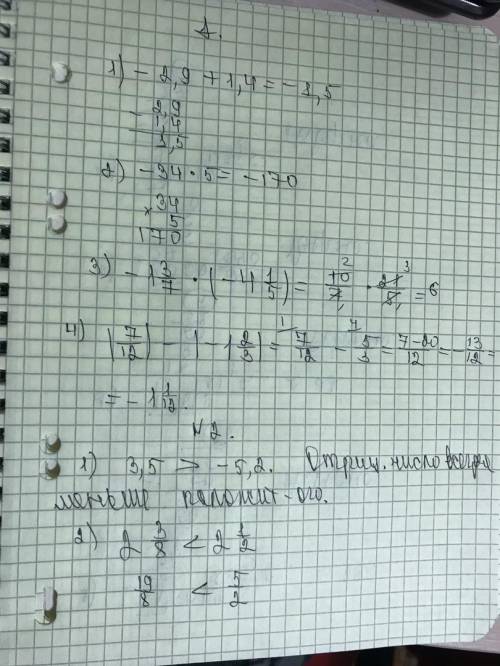 1.
1) - 2,9 + 1,4 = - 1,5
- 2,9
1,4
1,5
2) - 34 · 5 = - 170
× 34
5
170
3) - 1 3/7 · (- 4 1/5) = 10/7 · 21/5 = 6
2 1 3 1
4) |7/12| - |- 1 2/3| = 7/12 - 5/3 = 7-20/12 = - 13/12 =
1 4
= - 1 1/12.
№ 2.
1) 3,5 > - 5,2. Отриц. число всегда
меньше положит-ого.
2) 2 3/8 < 2 1/2
19/8 < 5/2